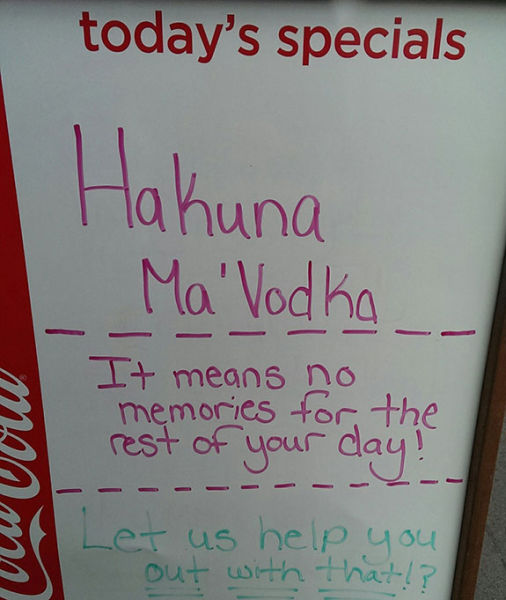 today's specials
Hakuna
Ma'Vodka
It means no
memories for the
rest of your day!
Let us help you
out with that!?
Coca-Cola